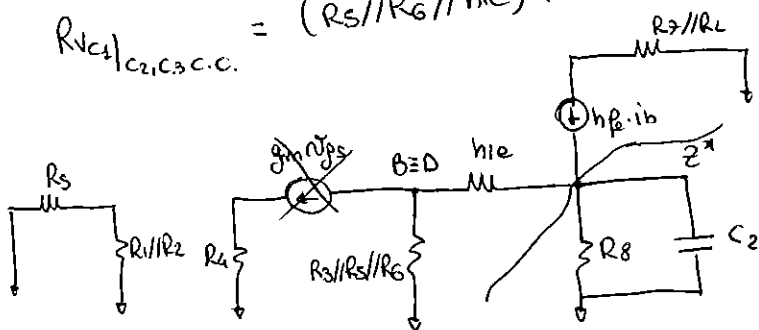 RVC1|C2,C3 C.C. = (R5//R6//hie)
R7//RL
hfe·ib
gm vgs
B≡D
hie
Z*
Rs
R1//R2
R4
R3//R5//R6
R8
C2